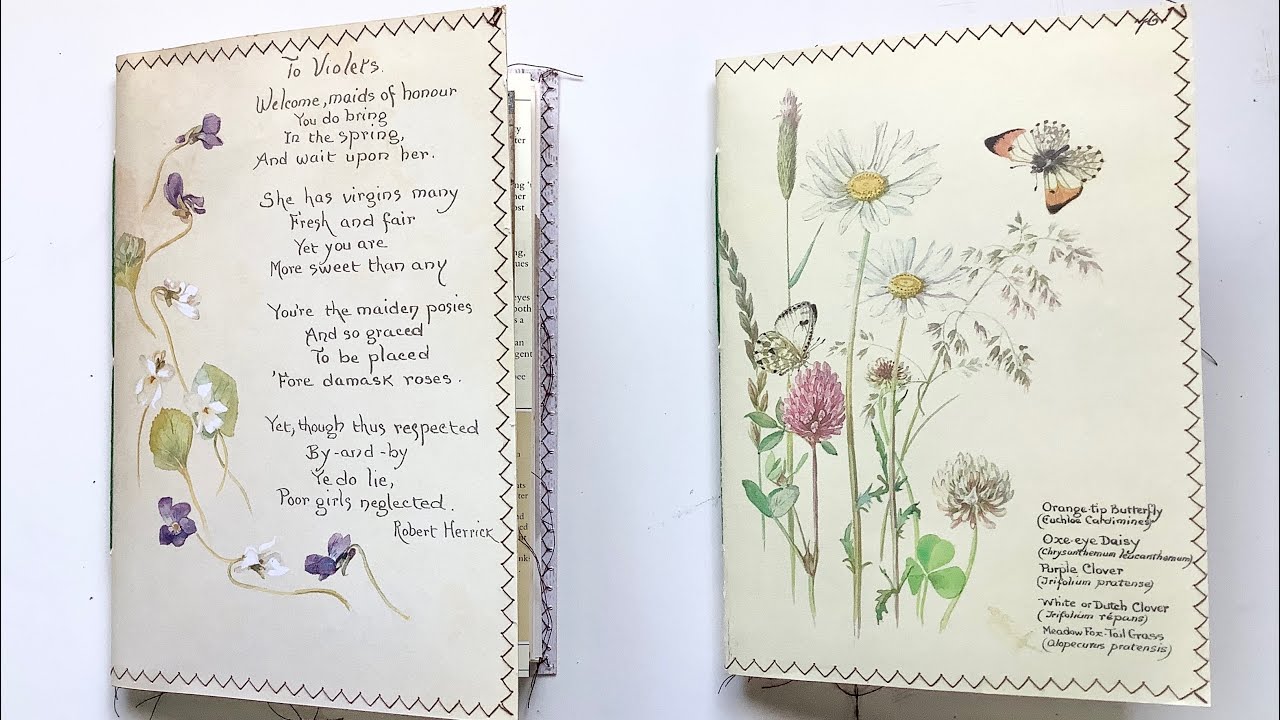 To Violets.
Welcome, maids of honour
You do bring
In the spring,
And wait upon her.
She has virgins many
Fresh and fair
Yet you are
More sweet than any
You're the maiden posies
And so graced
To be placed
'Fore damask roses.
Yet, though thus respected
By-and-by
Ye do lie,
Poor girls neglected.
Robert Herrick
46
Orange-tip Butterfly
(Euchloe Cardimines)
Oxe-eye Daisy
(Chrysanthemum leucanthemum)
Purple Clover
(Trifolium pratense)
White or Dutch Clover
(Trifolium répans)
Meadow Fox-Tail Grass
(Alopecurus pratensis)